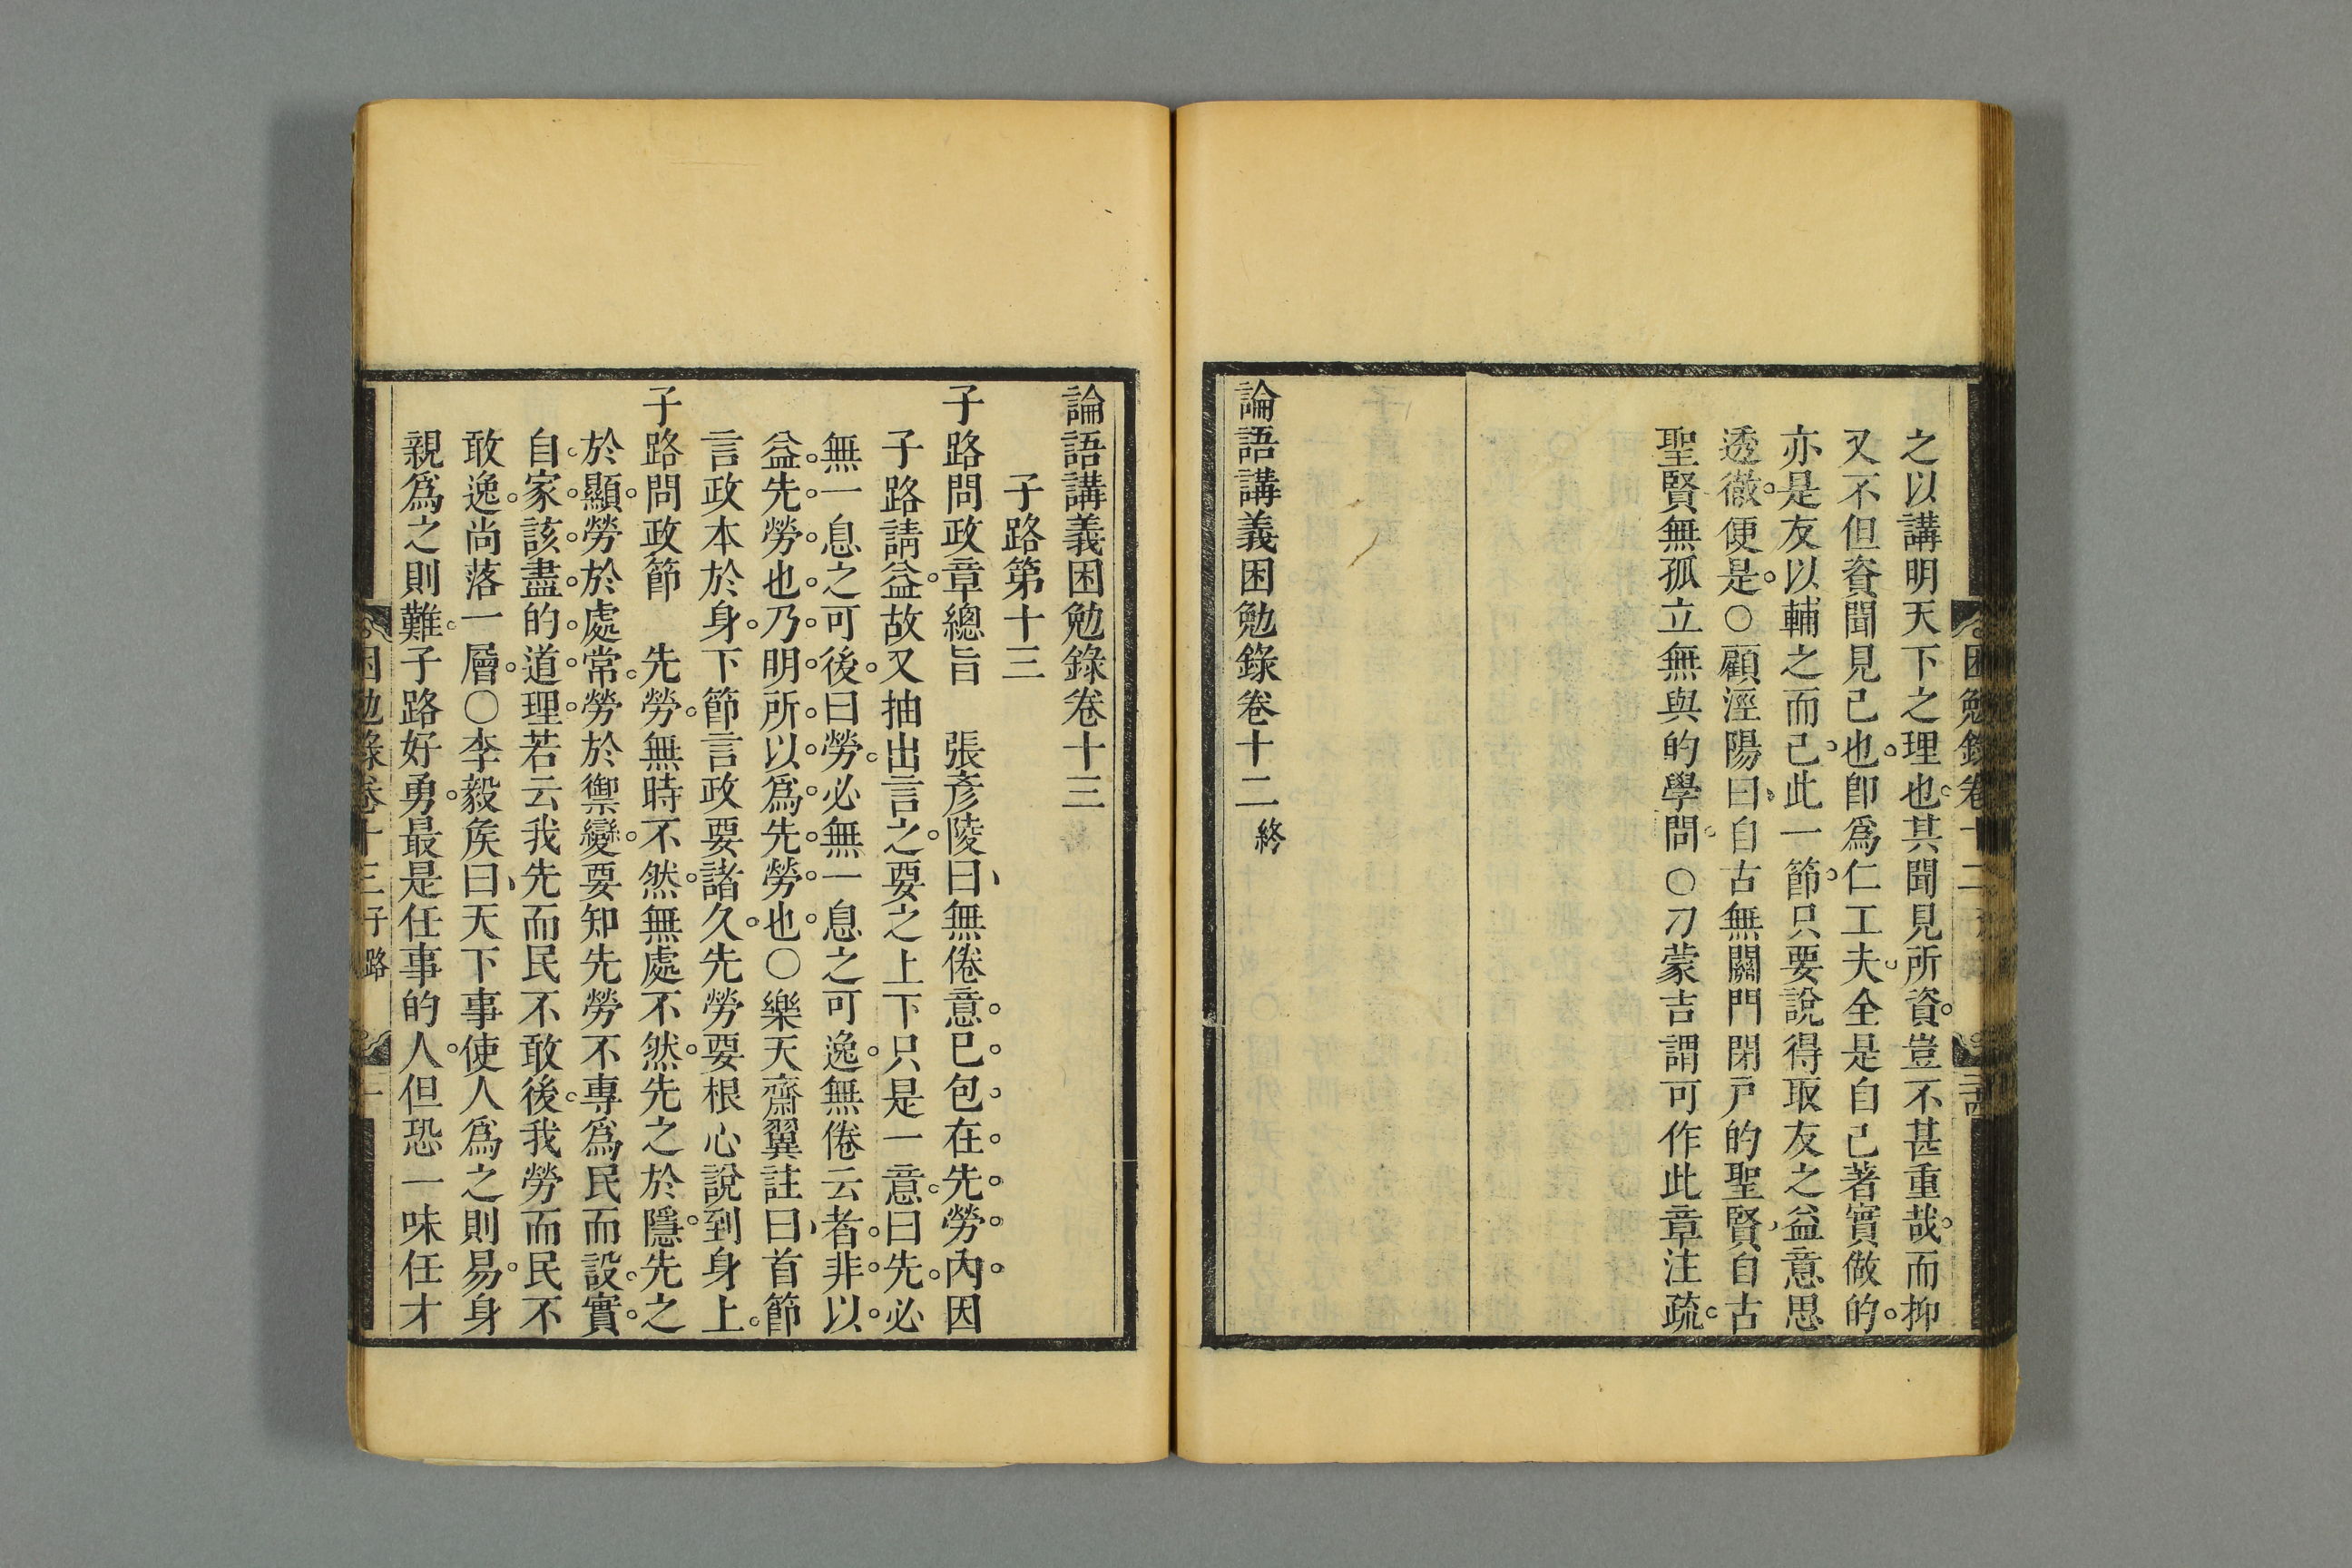 之以講明天下之理也其聞見所資豈不甚重哉而抑
又不但資聞見已也卽爲仁工夫全是自己著實做的
亦是友以輔之而已此一節只要說得取友之益意思
透徹便是○顧涇陽曰自古無關門閉戶的聖賢自古
聖賢無孤立無與的學問○刁蒙吉謂可作此章注疏
論語講義困勉錄卷十二 終
論語講義困勉錄卷十三
子路第十三
子路問政章總旨 張彥陵曰無倦意已包在先勞內因
子路請益故又抽出言之要之上下只是一意曰先必
無一息之可後曰勞必無一息之可逸無倦云者非以
益先勞也乃明所以爲先勞也○樂天齋翼註曰首節
言政本於身下節言政要諸久先勞要根心說到身上
子路問政節 先勞無時不然無處不然先之於隱先之
於顯勞於處常勞於禦變要知先勞不專爲民而設實
自家該盡的道理若云我先而民不敢後我勞而民不
敢逸尚落一層○李毅矦曰天下事使人爲之則易身
親爲之則難子路好勇最是任事的人但恐一味任才
困勉錄卷十三 子路